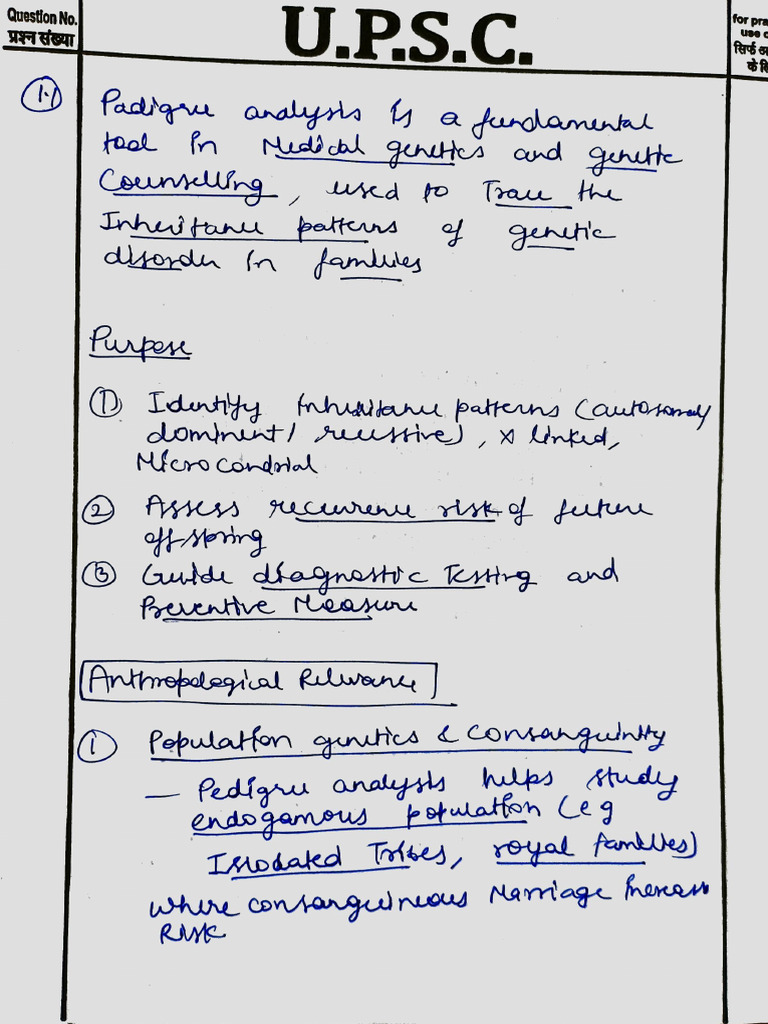 Question No.
प्रश्न संख्या
U.P.S.C.
for pra
use o
सिर्फ अ
के लि
1.
Padigree analysis is a fundamental
tool in Medical genetics and genetic
Counselling, used to Trace the
Inheritance patterns of genetic
disorder in families
Purpose
① Identify inheritance patterns (autosomal/
dominent/ recessive), X linked,
Microcondrial
② Assess recurrence risk of future
offspring
③ Guide diagnostic Testing and
Preventive Measure
Anthropological Relevance
① Population genetics & Consanguinity
— Pedigree analysis helps study
endogamous population (eg
Isolated Tribes, royal families)
where consanguineous Marriage Increase
Risk